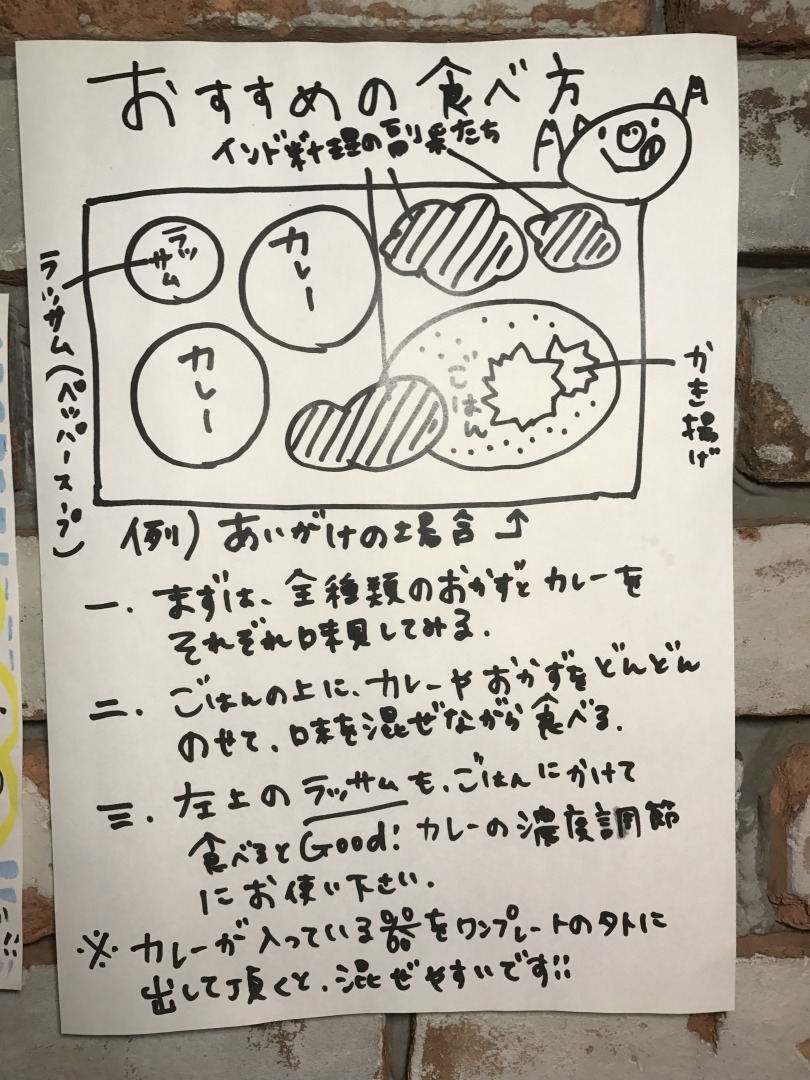 おすすめの食べ方
インド料理の副菜たち
ラッサム
カレー
カレー
ごはん
ラッサム(ペッパースープ)
かき揚げ
例)あいがけの場合
一. まずは、全種類のおかずとカレーを
それぞれ味見してみる.
二. ごはんの上に、カレーやおかずをどんどん
のせて、味を混ぜながら食べる.
三. 左上のラッサムも、ごはんにかけて
食べるとGood! カレーの濃度調節
にお使い下さい.
※カレーが入っている器をワンプレートの外に
出して頂くと、混ぜやすいです!!